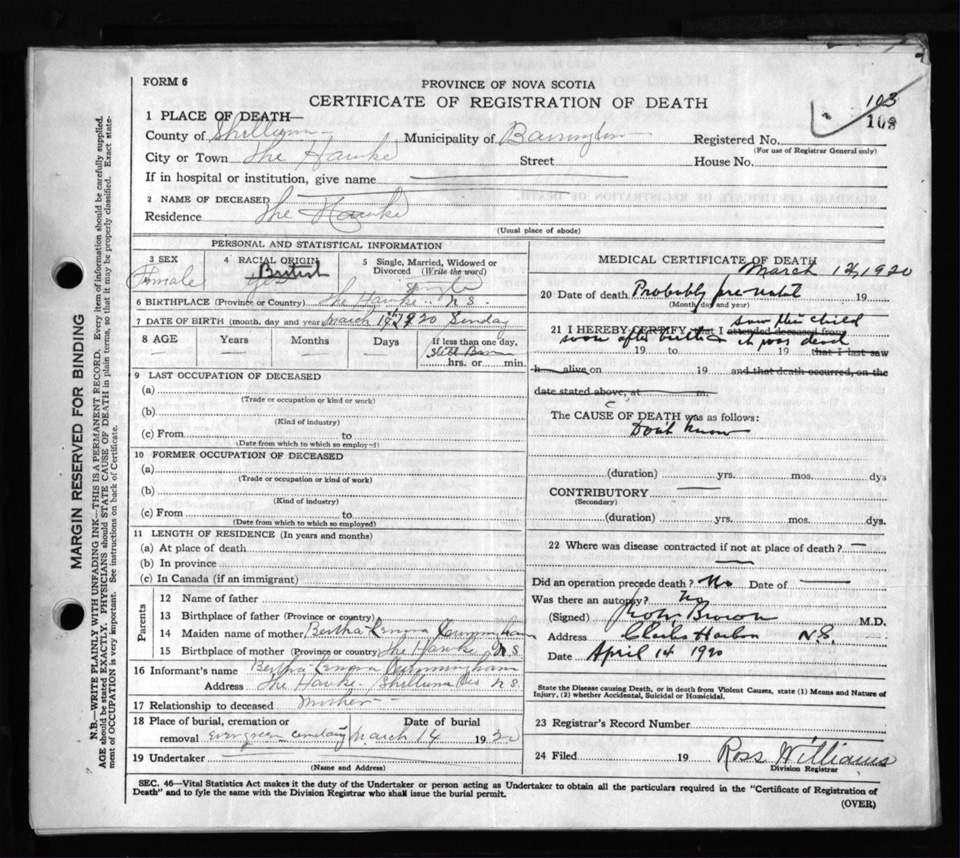 FORM 6
PROVINCE OF NOVA SCOTIA
CERTIFICATE OF REGISTRATION OF DEATH
103
108
1 PLACE OF DEATH—
County of Municipality of Registered No.
(For use of Registrar General only)
City or Town The Hawke Street House No.
If in hospital or institution, give name
2 NAME OF DECEASED
Residence The Hawke
(Usual place of abode)
PERSONAL AND STATISTICAL INFORMATION
3 SEX 4 RACIAL ORIGIN 5 Single, Married, Widowed or Divorced (Write the word)
Female British Single
6 BIRTHPLACE (Province or Country) The Hawke N S.
7 DATE OF BIRTH (month, day and year) March 1920 Sunday
8 AGE Years Months Days If less than one day,
Still Born
hrs. or min.
9 LAST OCCUPATION OF DECEASED
(a)
(Trade or occupation or kind or work)
(b)
(Kind of industry)
(c) From to
(Date from which to which so employed)
10 FORMER OCCUPATION OF DECEASED
(a)
(Trade or occupation or kind of work)
(b)
(Kind of industry)
(c) From to
(Date from which to which so employed)
11 LENGTH OF RESIDENCE (In years and months)
(a) At place of death
(b) In province
(c) In Canada (if an immigrant)
Parents
12 Name of father
13 Birthplace of father (Province or country)
14 Maiden name of mother Bertha Lenora Cunningham
15 Birthplace of mother (Province or country) The Hawke N S.
16 Informant's name Bertha Lenora Cunningham
Address The Hawke N S.
17 Relationship to deceased Mother
18 Place of burial, cremation or removal Date of burial
Evergreen cemetary March 14 1920
19 Undertaker
(Name and Address)
MEDICAL CERTIFICATE OF DEATH
March 12, 1920
20 Date of death Probably pre-natal 19
(Month day and year)
21 I HEREBY CERTIFY, that I attended deceased from
saw this child
soon after birth it was dead
19 to 19 that I last saw
h alive on 19 and that death occurred, on the
date stated above, at m.
The CAUSE OF DEATH was as follows:
Don't know
(duration) yrs. mos. dys
CONTRIBUTORY
(Secondary)
(duration) yrs. mos. dys.
22 Where was disease contracted if not at place of death?
Did an operation precede death? No Date of
Was there an autopsy? No
(Signed) Brown M.D.
Address Clarks Harbor N.S.
Date April 14 1920
State the Disease causing Death, or in death from Violent Causes, state (1) Means and Nature of
Injury, (2) whether Accidental, Suicidal or Homicidal.
23 Registrar's Record Number
24 Filed 19 Ross Williams
Division Registrar
SEC. 46—Vital Statistics Act makes it the duty of the Undertaker or person acting as Undertaker to obtain all the particulars required in the "Certificate of Registration of
Death" and to fyle the same with the Division Registrar who shall issue the burial permit.
(OVER)
MARGIN RESERVED FOR BINDING
N.B.—WRITE PLAINLY WITH UNFADING INK—THIS IS A PERMANENT RECORD. Every item of information should be carefully supplied.
AGE should be stated EXACTLY. PHYSICIANS should STATE CAUSE OF DEATH in plain terms, so that it may be properly classified. Exact state-
ment of OCCUPATION is very important. See instructions on back of Certificate.